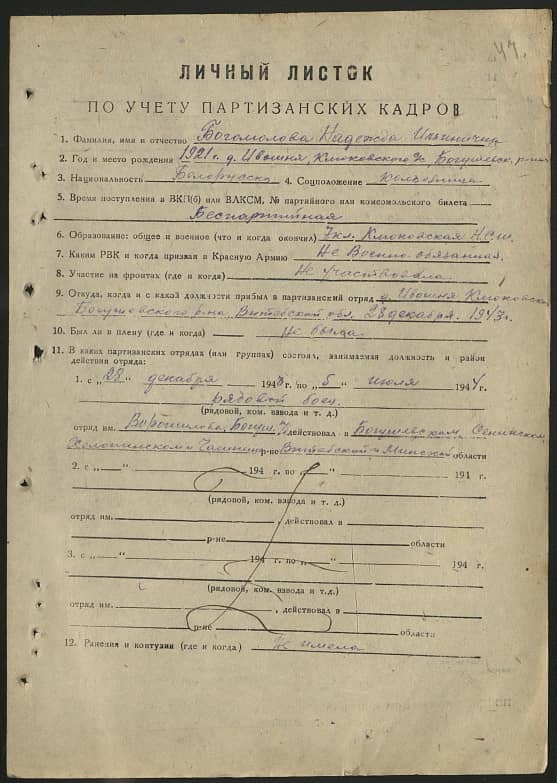 47.
ЛИЧНЫЙ ЛИСТОК
ПО УЧЕТУ ПАРТИЗАНСКИХ КАДРОВ
1. Фамилия, имя и отчество Богомолова Надежда Ильинична
2. Год и место рождения 1921 г. д. Ивошня, Клюковского Богушевск. р-на
3. Национальность Белорусска 4. Соцположение колховница
5. Время поступления в ВКП(б) или ВЛКСМ, № партийного или комсомольского билета
Беспартийная
6. Образование: общее и военное (что и когда окончил) 7 кл. Клюковская Н.С.Ш.
7. Каким РВК и когда призван в Красную Армию Не Военно-обязанная.
8. Участие на фронтах (где и когда) Не участвовала
9. Откуда, когда и с какой должности прибыл в партизанский отряд д. Ивошня Клюковск.
Богушевского р-на, Витебской обл. 28 декабря. 1943 г.
10. Был ли в плену (где и когда) Не была
11. В каких партизанских отрядах (или группах) состоял, занимаемая должность и район
действия отряда:
1. с „28" декабря 1943 г. по „5" июля 1944 г.
рядовой боец
(рядовой, ком. взвода и т. д.)
отряд им. Ворошилова, действовал в Богушевском, Сенинском,
Холопинском и р-не Витебской и Минской области
2. с „ " 194 г. по „ " 194 г.
(рядовой, ком. взвода и т. д.)
отряд им. , действовал в
р-не области
3. с „ " 194 г. по „ " 194 г.
(рядовой, ком. взвода и т.д.)
отряд им. , действовал в
р-не области
12. Ранения и контузии (где и когда) Не имела